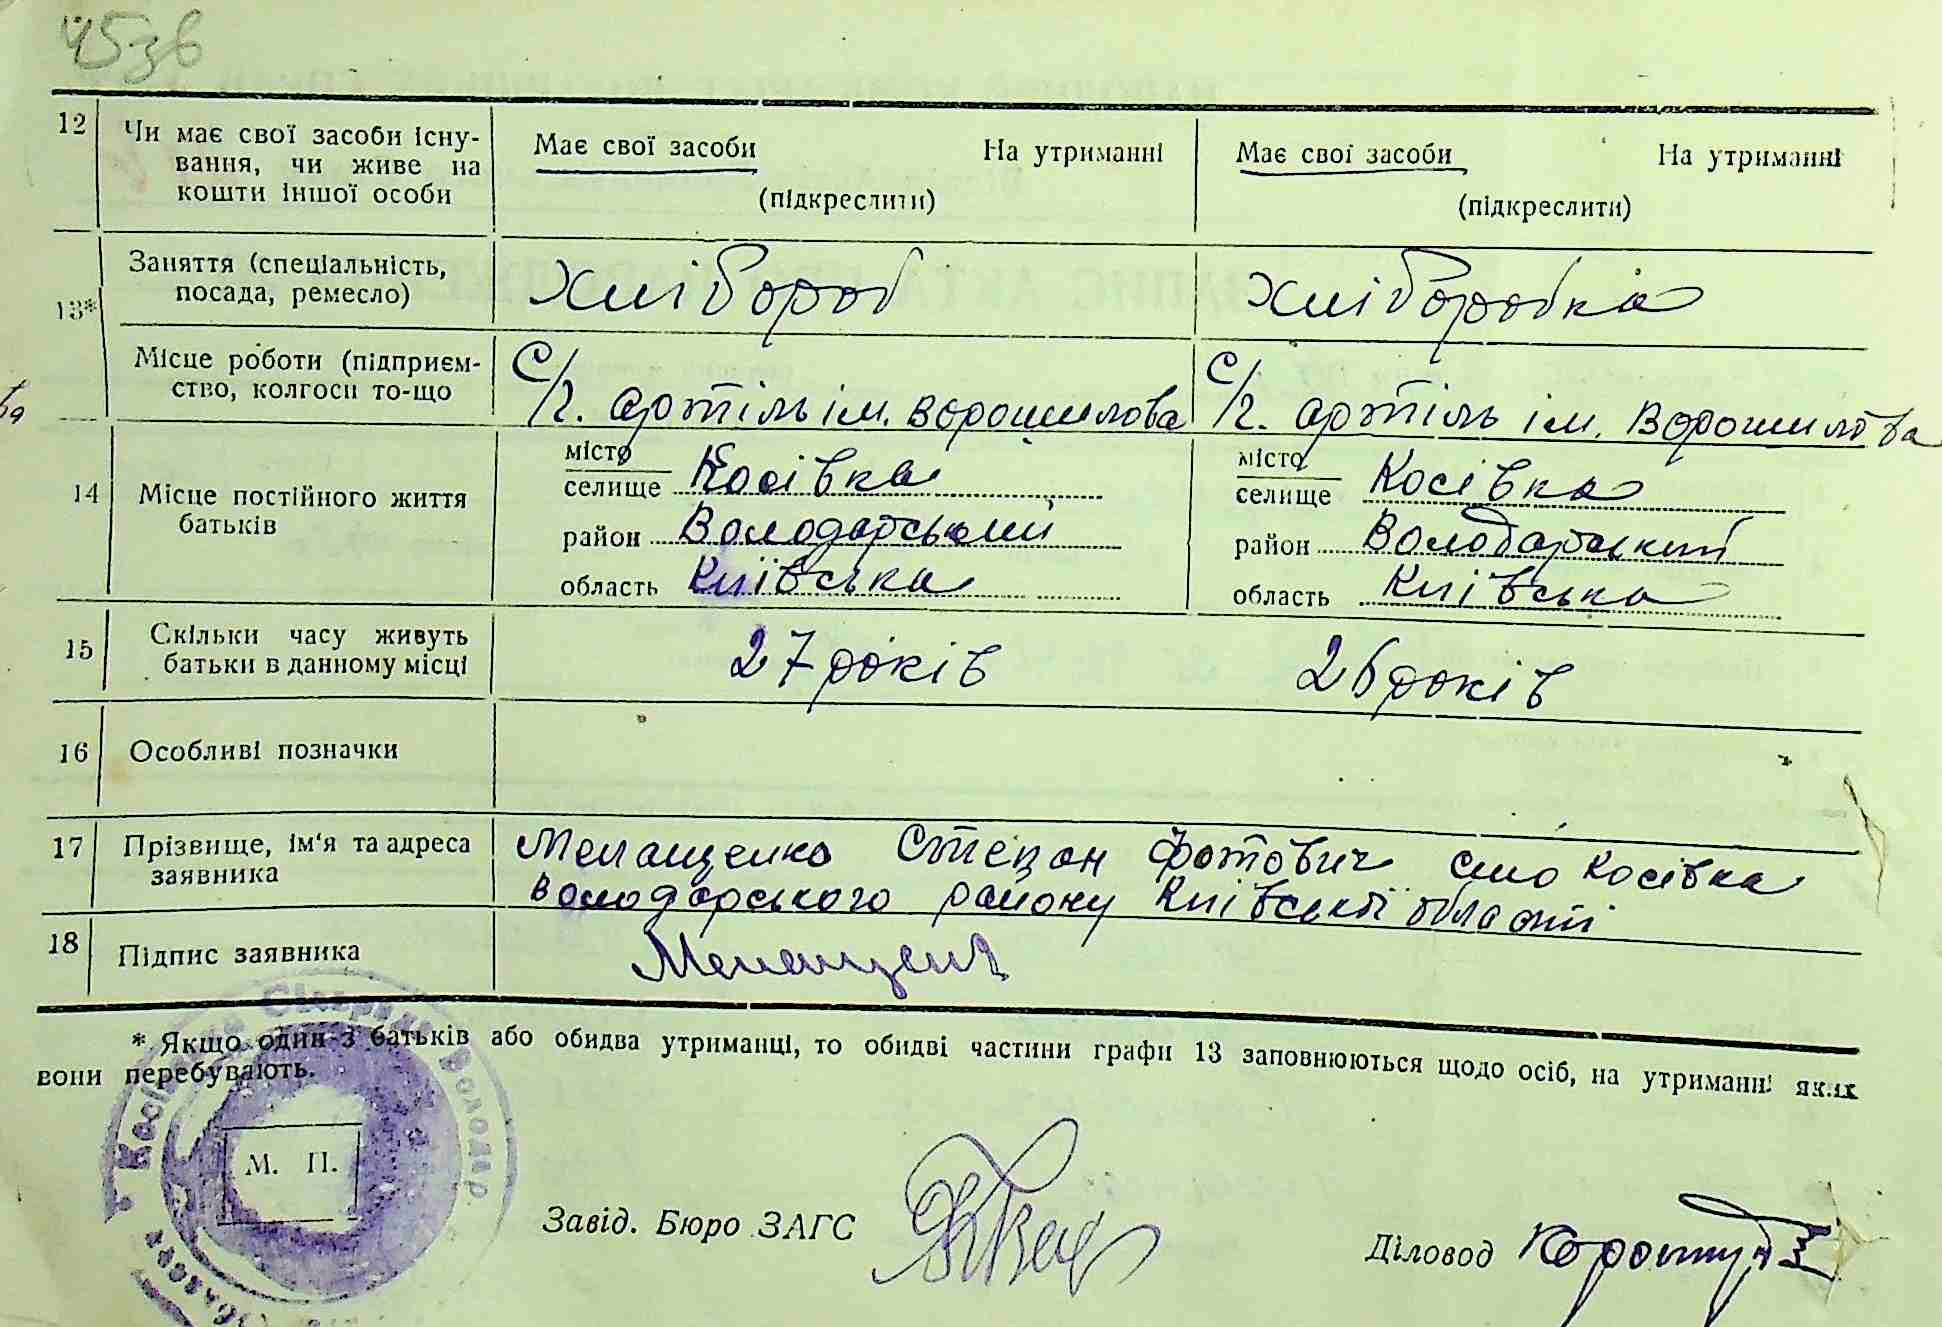 45зв
12 Чи має свої засоби існу-
вання, чи живе на
кошти іншої особи
Має свої засоби На утриманні
(підкреслити)
Має свої засоби На утриманні
(підкреслити)
13*
Заняття (спеціальність,
посада, ремесло)
хлібороб
хліборобка
Місце роботи (підприєм-
ство, колгосп то-що
С/г. артіль ім. Ворошилова
С/г. артіль ім. Ворошилова
14 Місце постійного життя
батьків
місто
селище Косівка
район Володарський
область Київська
місто
селище Косівка
район Володарський
область Київська
15 Скільки часу живуть
батьки в данному місці
27 років
26 років
16 Особливі позначки
17 Прізвище, ім'я та адреса
заявника
Мелащенко Степан Фотович село Косівка
Володарського району Київської області
18 Підпис заявника
* Якщо один з батьків або обидва утриманці, то обидві частини графи 13 заповнюються щодо осіб, на утриманні яких
вони перебувають.
М. П.
Завід. Бюро ЗАГС
Діловод